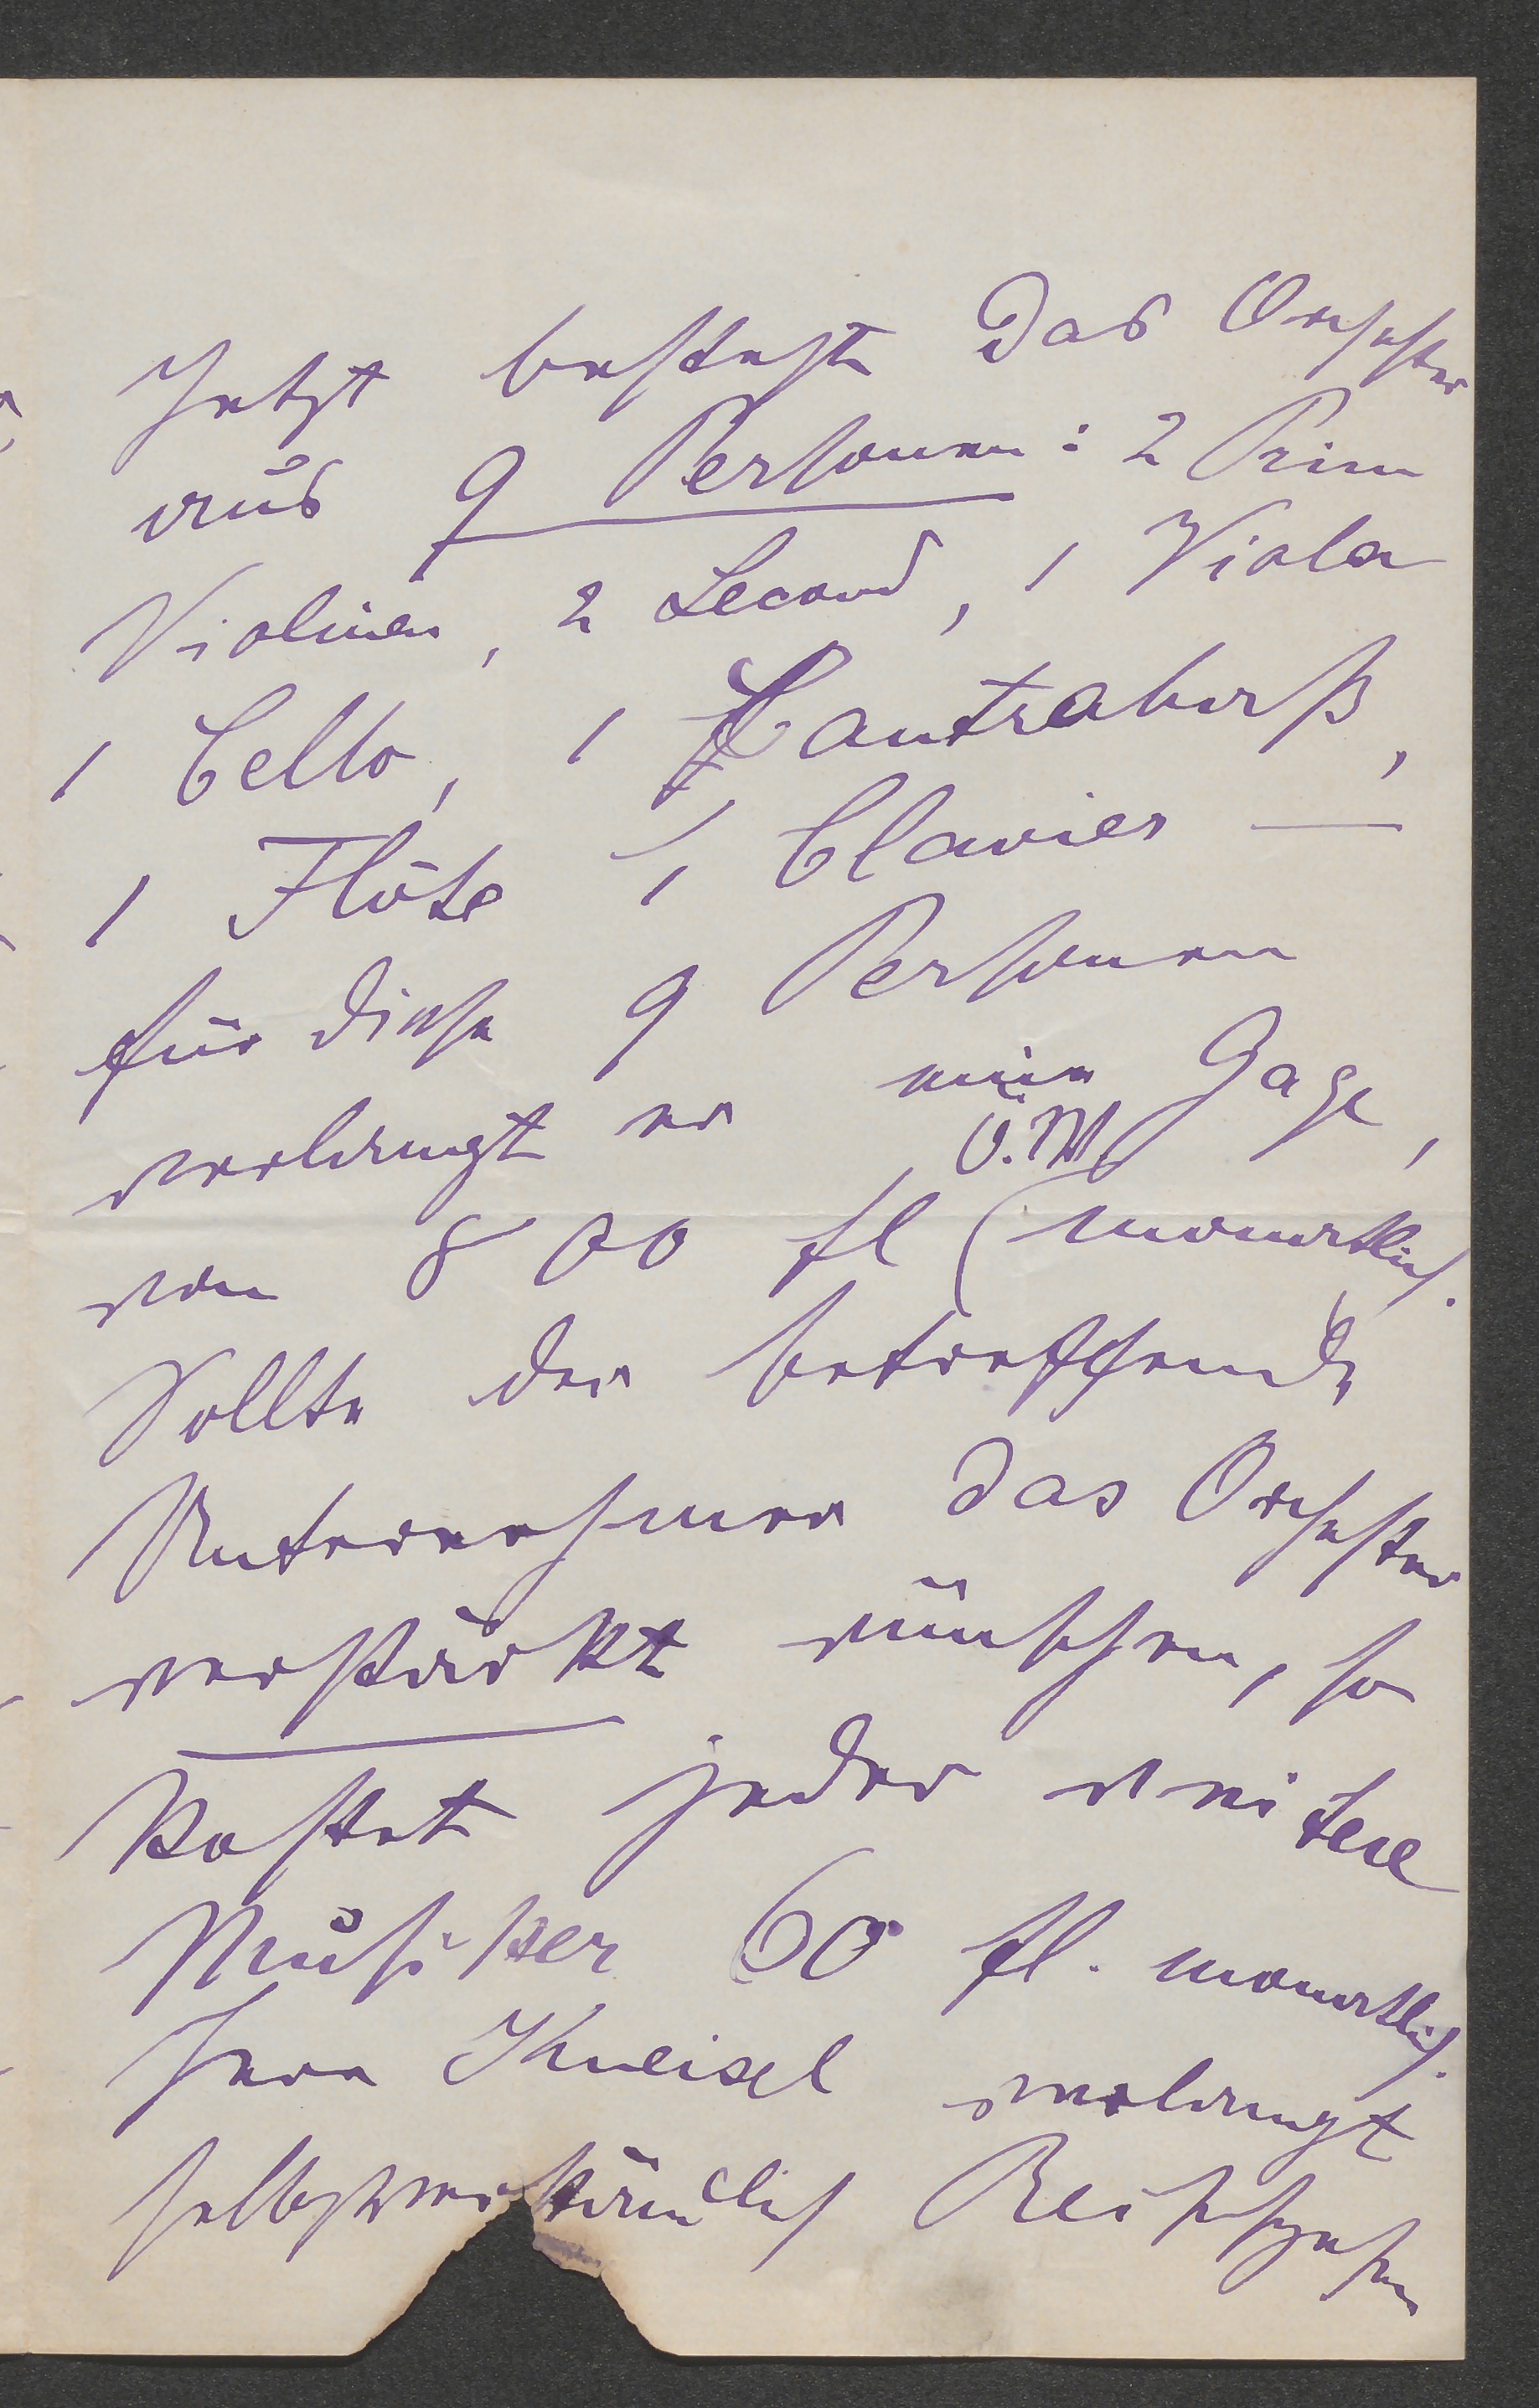 Jetzt besteht das Orchester
aus 9 Personen: 2 Prim
Violinen, 2 Second, 1 Viola
1 Cello, 1 Contrabaß,
1 Flöte 1 Clavier —
für diese 9 Personen
verlangt er eine Gage,
von 800 fl (Ö.W. monatlich.
Sollte der betreffende
Unternehmer das Orchester
verstärkt wünschen, so
kostet jeder weitere
Musiker 60 fl. monatlich.
Herr Kneisel verlangt
selbstverständlich